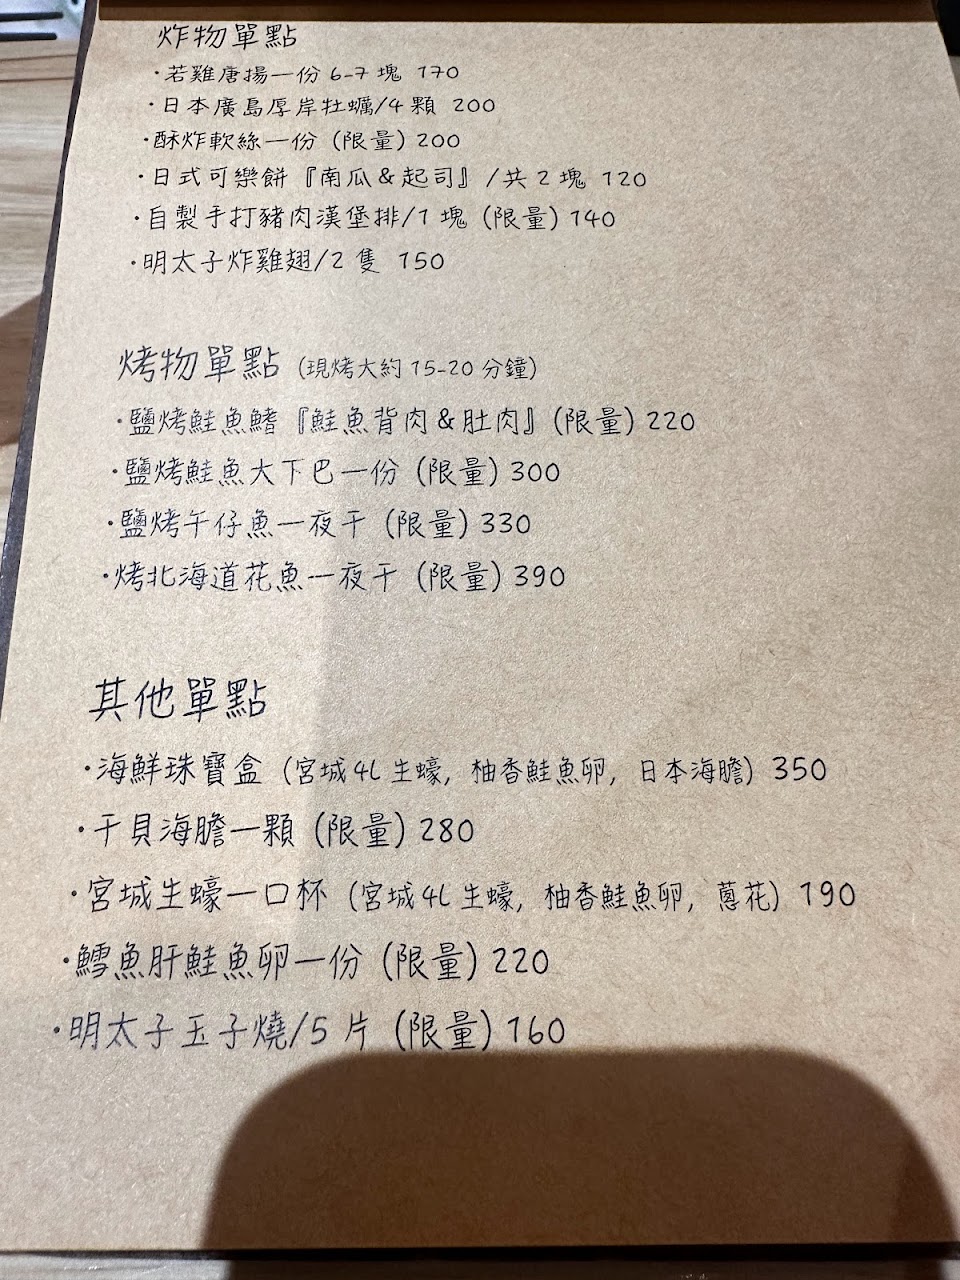 炸物單點
·若雞唐揚一份 6-7 塊 170
·日本廣島厚岸牡蠣/4 顆 200
·酥炸軟絲一份 (限量) 200
·日式可樂餅『南瓜&起司』/共 2 塊 120
·自製手打豬肉漢堡排/1 塊 (限量) 140
·明太子炸雞翅/2 隻 150
烤物單點 (現烤大約 15-20 分鐘)
·鹽烤鮭魚鰭『鮭魚背肉&肚肉』(限量) 220
·鹽烤鮭魚大下巴一份 (限量) 300
·鹽烤午仔魚一夜干 (限量) 330
·烤北海道花魚一夜干 (限量) 390
其他單點
·海鮮珠寶盒 (宮城 4L 生蠔, 柚香鮭魚卵, 日本海膽) 350
·干貝海膽一顆 (限量) 280
·宮城生蠔一口杯 (宮城 4L 生蠔, 柚香鮭魚卵, 蔥花) 190
·鱈魚肝鮭魚卵一份 (限量) 220
·明太子玉子燒/5 片 (限量) 160